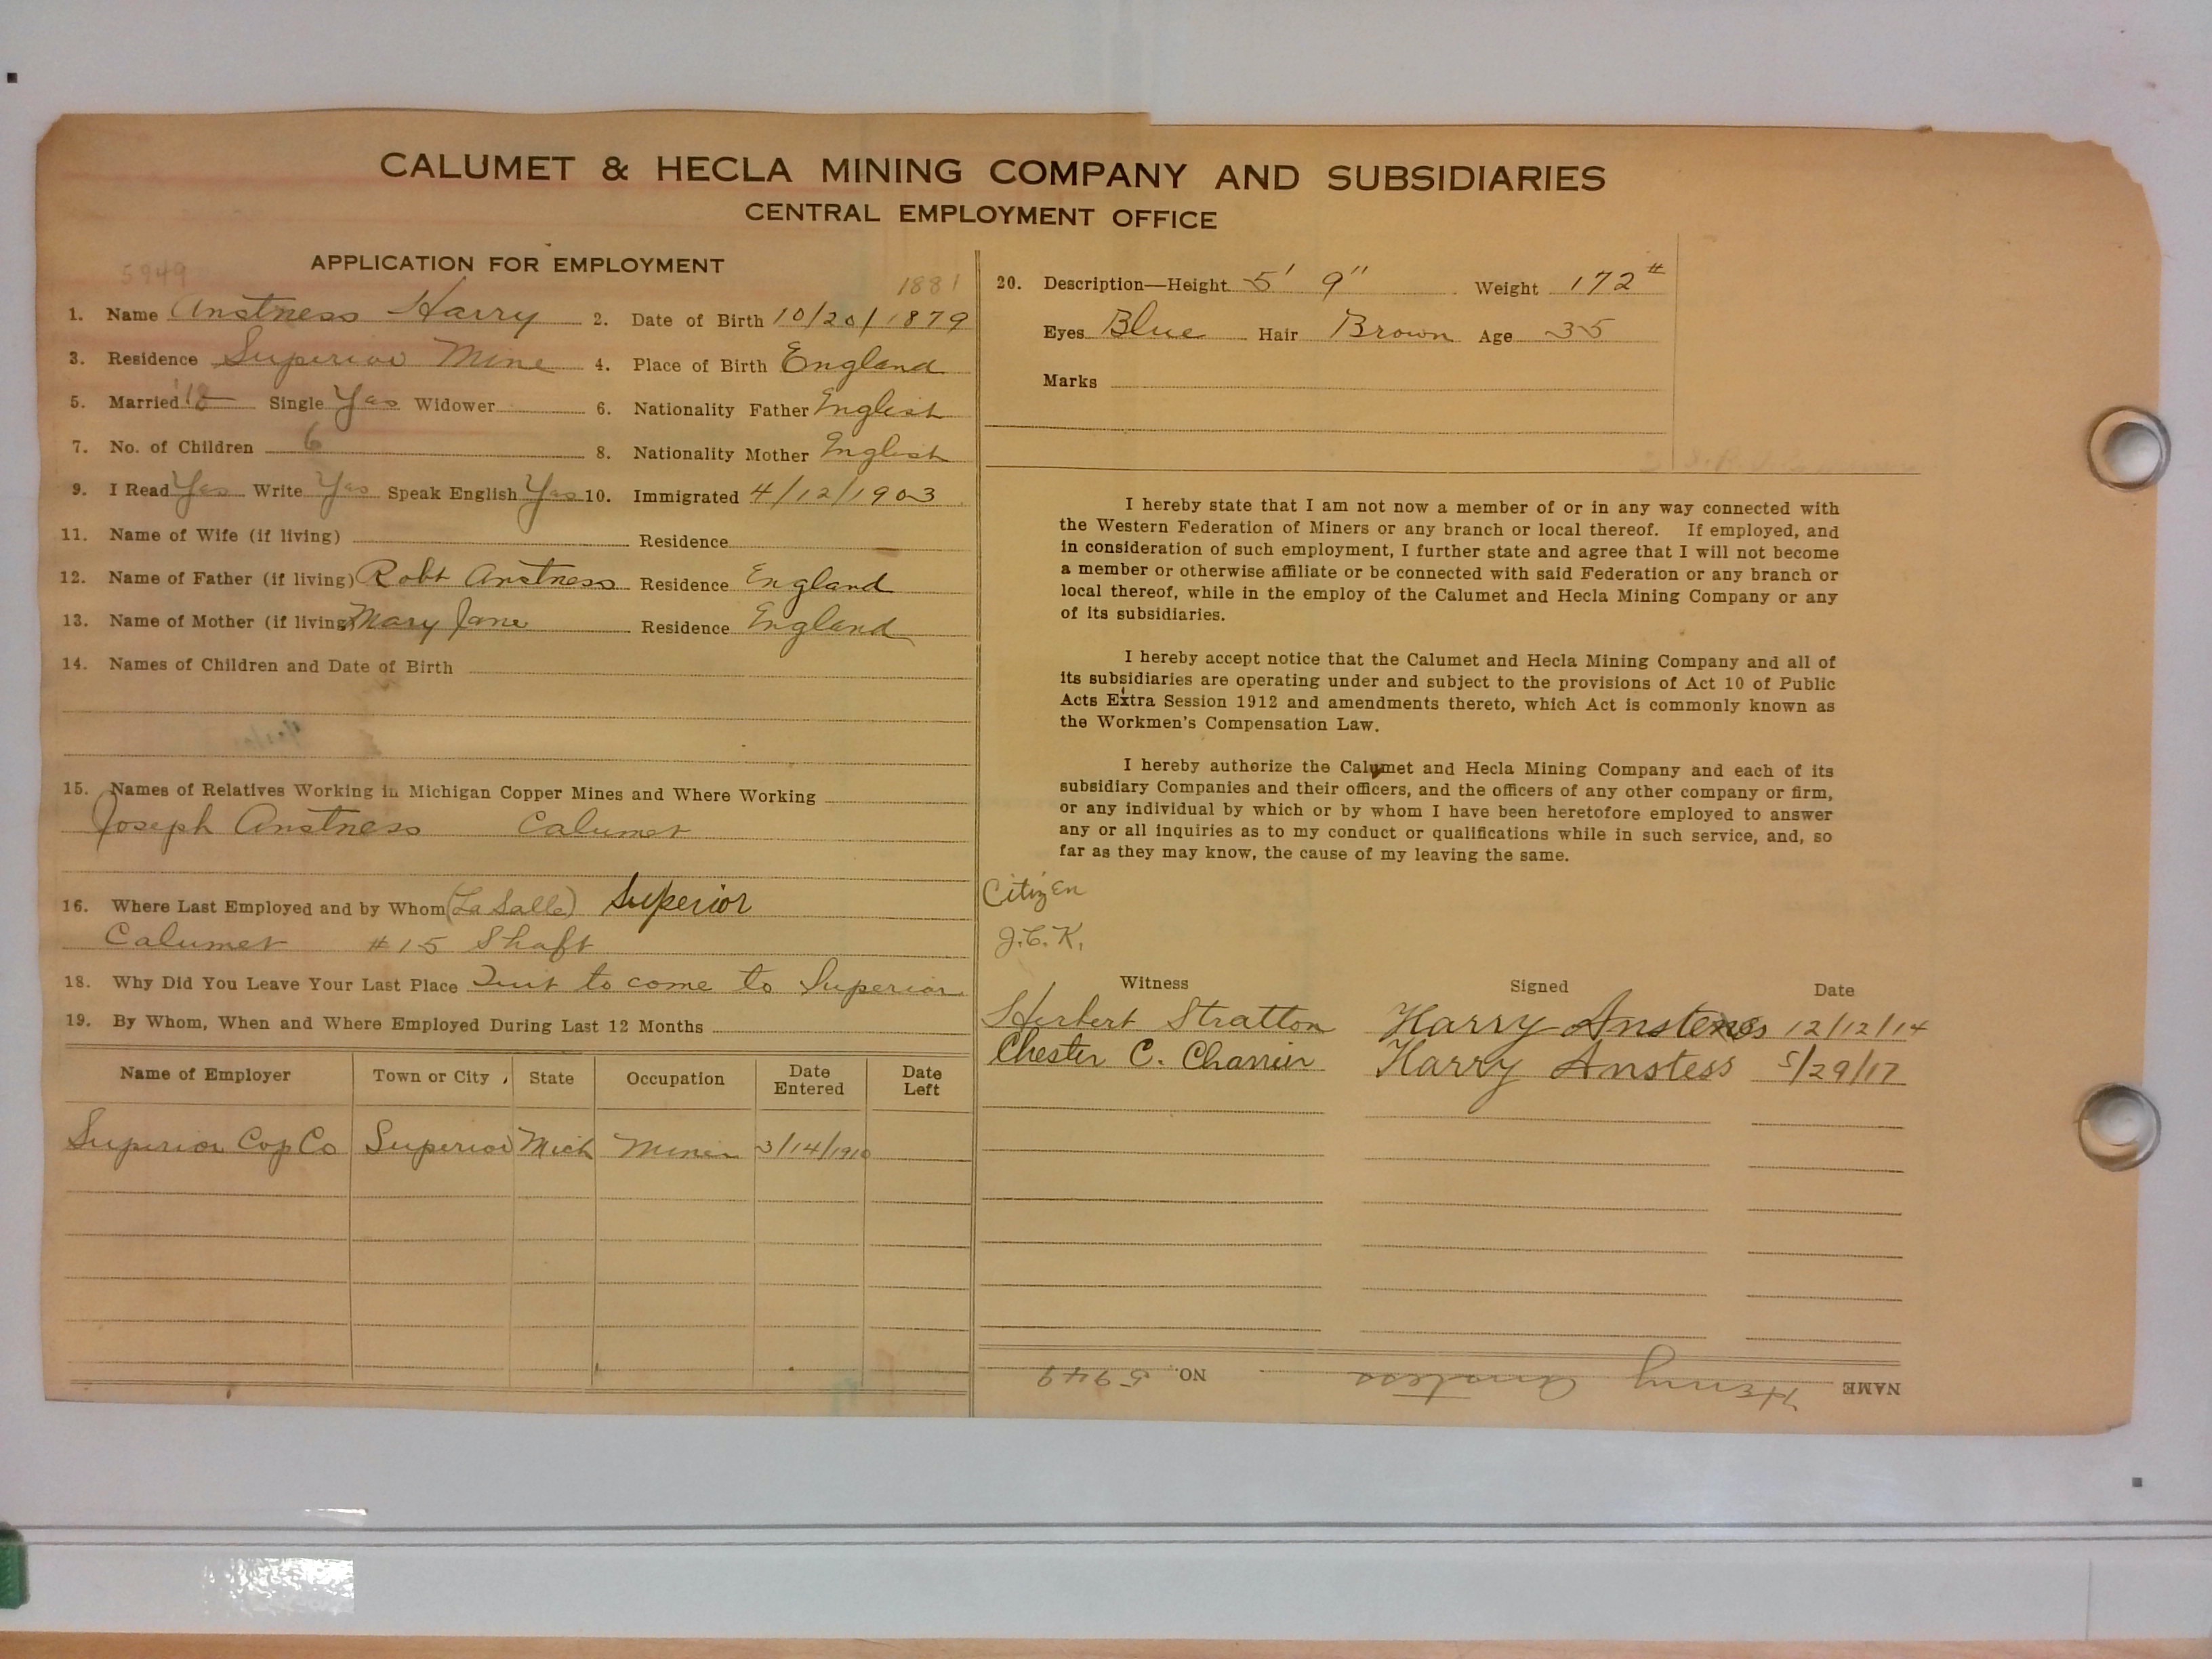 CALUMET & HECLA MINING COMPANY AND SUBSIDIARIES
CENTRAL EMPLOYMENT OFFICE
5949
APPLICATION FOR EMPLOYMENT
1881
1. Name Anstness Harry 2. Date of Birth 10/20/1879
3. Residence Superior Mine 4. Place of Birth England
5. Married Single Yes Widower 6. Nationality Father English
7. No. of Children 6 8. Nationality Mother English
9. I Read Yes Write Yes Speak English Yes 10. Immigrated 4/12/1903
11. Name of Wife (if living) Residence
12. Name of Father (if living) Robt Anstness Residence England
13. Name of Mother (if living) Mary Jane Residence England
14. Names of Children and Date of Birth
15. Names of Relatives Working in Michigan Copper Mines and Where Working
Joseph Anstness Calumet
16. Where Last Employed and by Whom (La Salle) Superior
Calumet #15 Shaft
18. Why Did You Leave Your Last Place Quit to come to Superior
19. By Whom, When and Where Employed During Last 12 Months
Name of Employer Town or City State Occupation Date Entered Date Left
Superior Cop Co Superior Mich Miner 3/14/1910
20. Description—Height 5' 9" Weight 172#
Eyes Blue Hair Brown Age 35
Marks
I hereby state that I am not now a member of or in any way connected with
the Western Federation of Miners or any branch or local thereof. If employed, and
in consideration of such employment, I further state and agree that I will not become
a member or otherwise affiliate or be connected with said Federation or any branch or
local thereof, while in the employ of the Calumet and Hecla Mining Company or any
of its subsidiaries.
I hereby accept notice that the Calumet and Hecla Mining Company and all of
its subsidiaries are operating under and subject to the provisions of Act 10 of Public
Acts Extra Session 1912 and amendments thereto, which Act is commonly known as
the Workmen's Compensation Law.
I hereby authorize the Calumet and Hecla Mining Company and each of its
subsidiary Companies and their officers, and the officers of any other company or firm,
or any individual by which or by whom I have been heretofore employed to answer
any or all inquiries as to my conduct or qualifications while in such service, and, so
far as they may know, the cause of my leaving the same.
Citizen
J.C.K.
Witness Signed Date
Herbert Stratton Harry Anstenes 12/12/14
Chester C. Harry Anstess 5/29/17
NAME Henry Anstess NO. 5949